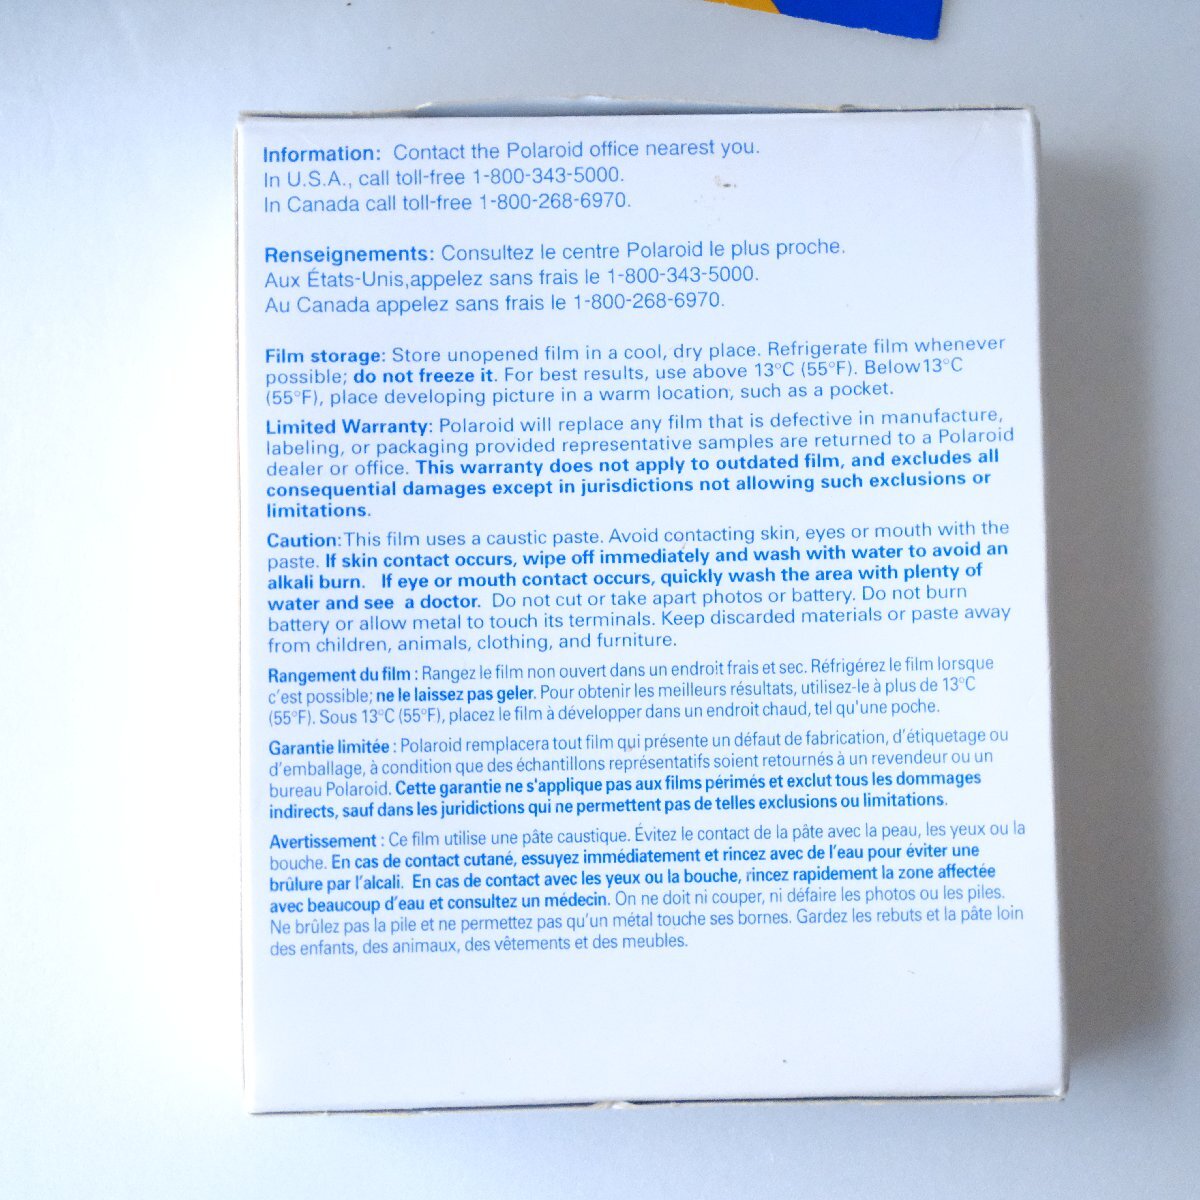 Information: Contact the Polaroid office nearest you.
In U.S.A., call toll-free 1-800-343-5000.
In Canada call toll-free 1-800-268-6970.
Renseignements: Consultez le centre Polaroid le plus proche.
Aux États-Unis,appelez sans frais le 1-800-343-5000.
Au Canada appelez sans frais le 1-800-268-6970.
Film storage: Store unopened film in a cool, dry place. Refrigerate film whenever
possible; do not freeze it. For best results, use above 13°C (55°F). Below 13°C
(55°F), place developing picture in a warm location, such as a pocket.
Limited Warranty: Polaroid will replace any film that is defective in manufacture,
labeling, or packaging provided representative samples are returned to a Polaroid
dealer or office. This warranty does not apply to outdated film, and excludes all
consequential damages except in jurisdictions not allowing such exclusions or
limitations.
Caution: This film uses a caustic paste. Avoid contacting skin, eyes or mouth with the
paste. If skin contact occurs, wipe off immediately and wash with water to avoid an
alkali burn. If eye or mouth contact occurs, quickly wash the area with plenty of
water and see a doctor. Do not cut or take apart photos or battery. Do not burn
battery or allow metal to touch its terminals. Keep discarded materials or paste away
from children, animals, clothing, and furniture.
Rangement du film : Rangez le film non ouvert dans un endroit frais et sec. Réfrigérez le film lorsque
c'est possible; ne le laissez pas geler. Pour obtenir les meilleurs résultats, utilisez-le à plus de 13°C
(55°F). Sous 13°C (55°F), placez le film à développer dans un endroit chaud, tel qu'une poche.
Garantie limitée : Polaroid remplacera tout film qui présente un défaut de fabrication, d'étiquetage ou
d'emballage, à condition que des échantillons représentatifs soient retournés à un revendeur ou un
bureau Polaroid. Cette garantie ne s'applique pas aux films périmés et exclut tous les dommages
indirects, sauf dans les juridictions qui ne permettent pas de telles exclusions ou limitations.
Avertissement : Ce film utilise une pâte caustique. Évitez le contact de la pâte avec la peau, les yeux ou la
bouche. En cas de contact cutané, essuyez immédiatement et rincez avec de l'eau pour éviter une
brûlure par l'alcali. En cas de contact avec les yeux ou la bouche, rincez rapidement la zone affectée
avec beaucoup d'eau et consultez un médecin. On ne doit ni couper, ni défaire les photos ou les piles.
Ne brûlez pas la pile et ne permettez pas qu'un métal touche ses bornes. Gardez les rebuts et la pâte loin
des enfants, des animaux, des vêtements et des meubles.